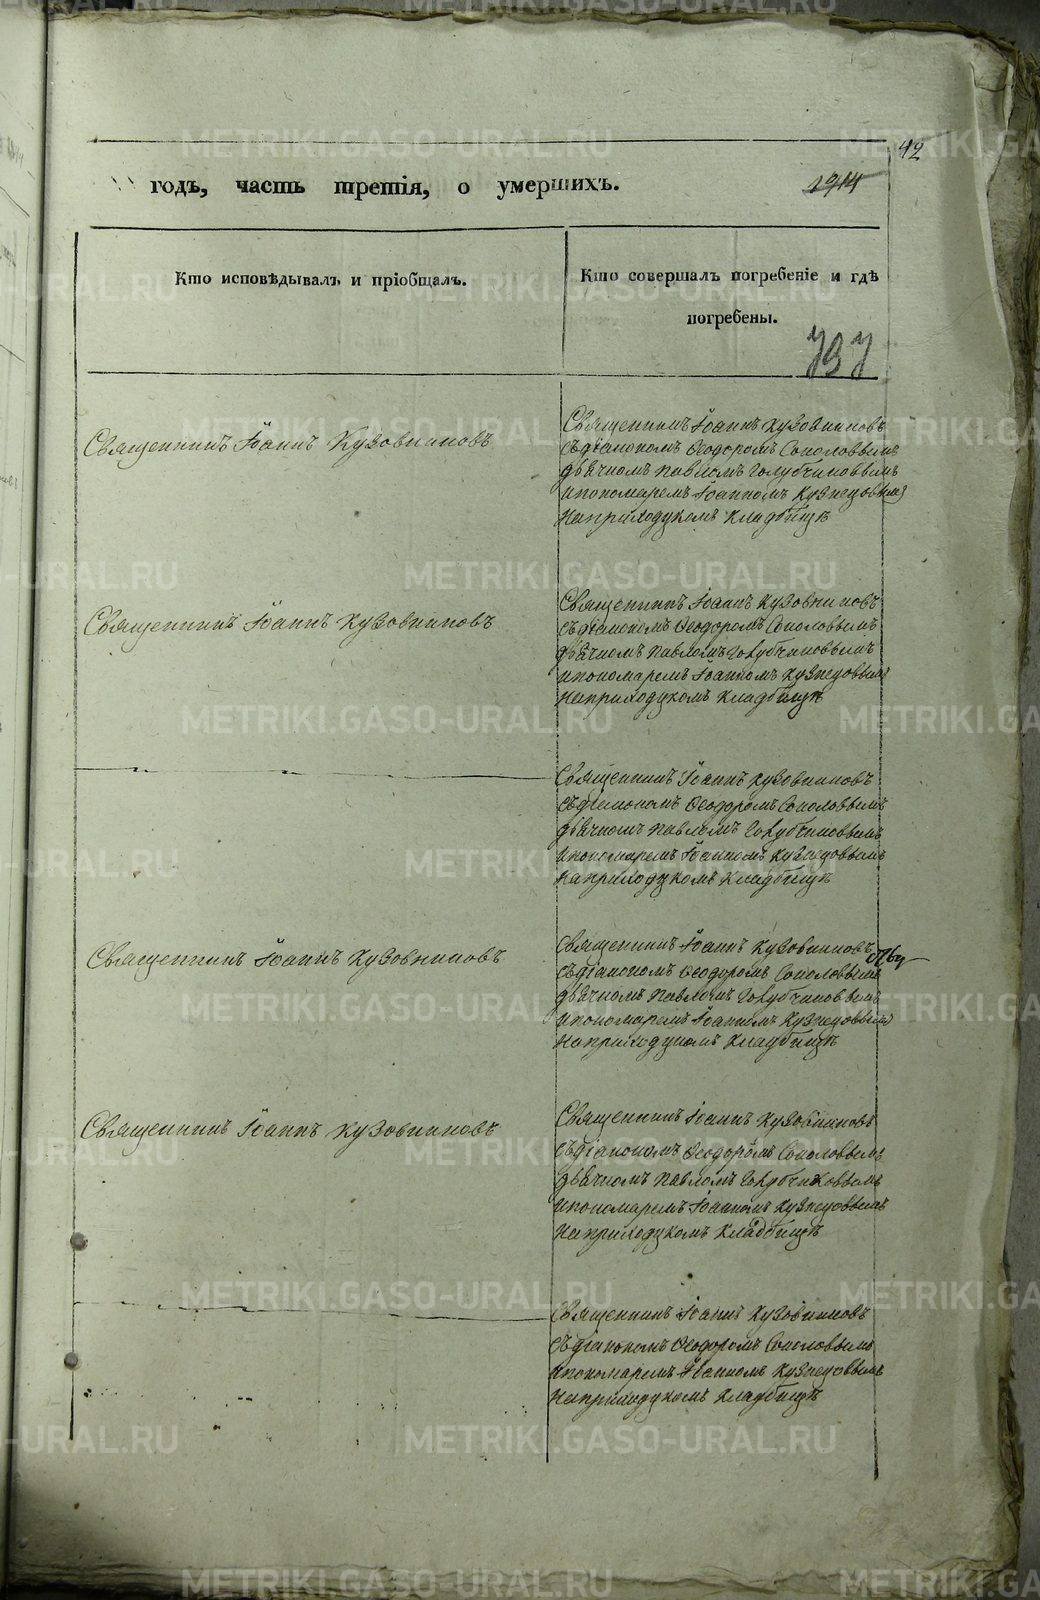 42
годъ, часть третія, о умершихъ.
1914
Кто исповѣдывалъ и пріобщалъ.
Кто совершалъ погребеніе и гдѣ
погребены.
797
Священникъ Іоаннъ Кузовниковъ
Священникъ Іоаннъ Кузовниковъ
съ діакономъ Ѳеодоромъ Соколовымъ
дьячкомъ Павломъ Голубчиковымъ
и пономаремъ Іоанномъ Кузнецовымъ
на приходскомъ кладбищѣ
Священникъ Іоаннъ Кузовниковъ
Священникъ Іоаннъ Кузовниковъ
съ діакономъ Ѳеодоромъ Соколовымъ
дьячкомъ Павломъ Голубчиковымъ
и пономаремъ Іоанномъ Кузнецовымъ
на приходскомъ кладбищѣ
Священникъ Іоаннъ Кузовниковъ
съ діакономъ Ѳеодоромъ Соколовымъ
дьячкомъ Павломъ Голубчиковымъ
и пономаремъ Іоанномъ Кузнецовымъ
на приходскомъ кладбищѣ
Священникъ Іоаннъ Кузовниковъ
Священникъ Іоаннъ Кузовниковъ
съ діакономъ Ѳеодоромъ Соколовымъ
дьячкомъ Павломъ Голубчиковымъ
и пономаремъ Іоанномъ Кузнецовымъ
на приходскомъ кладбищѣ
Священникъ Іоаннъ Кузовниковъ
Священникъ Іоаннъ Кузовниковъ
съ діакономъ Ѳеодоромъ Соколовымъ
дьячкомъ Павломъ Голубчиковымъ
и пономаремъ Іоанномъ Кузнецовымъ
на приходскомъ кладбищѣ
Священникъ Іоаннъ Кузовниковъ
съ діакономъ Ѳеодоромъ Соколовымъ
и пономаремъ Іоанномъ Кузнецовымъ
на приходскомъ кладбищѣ
METRIKI.GASO-URAL.RU